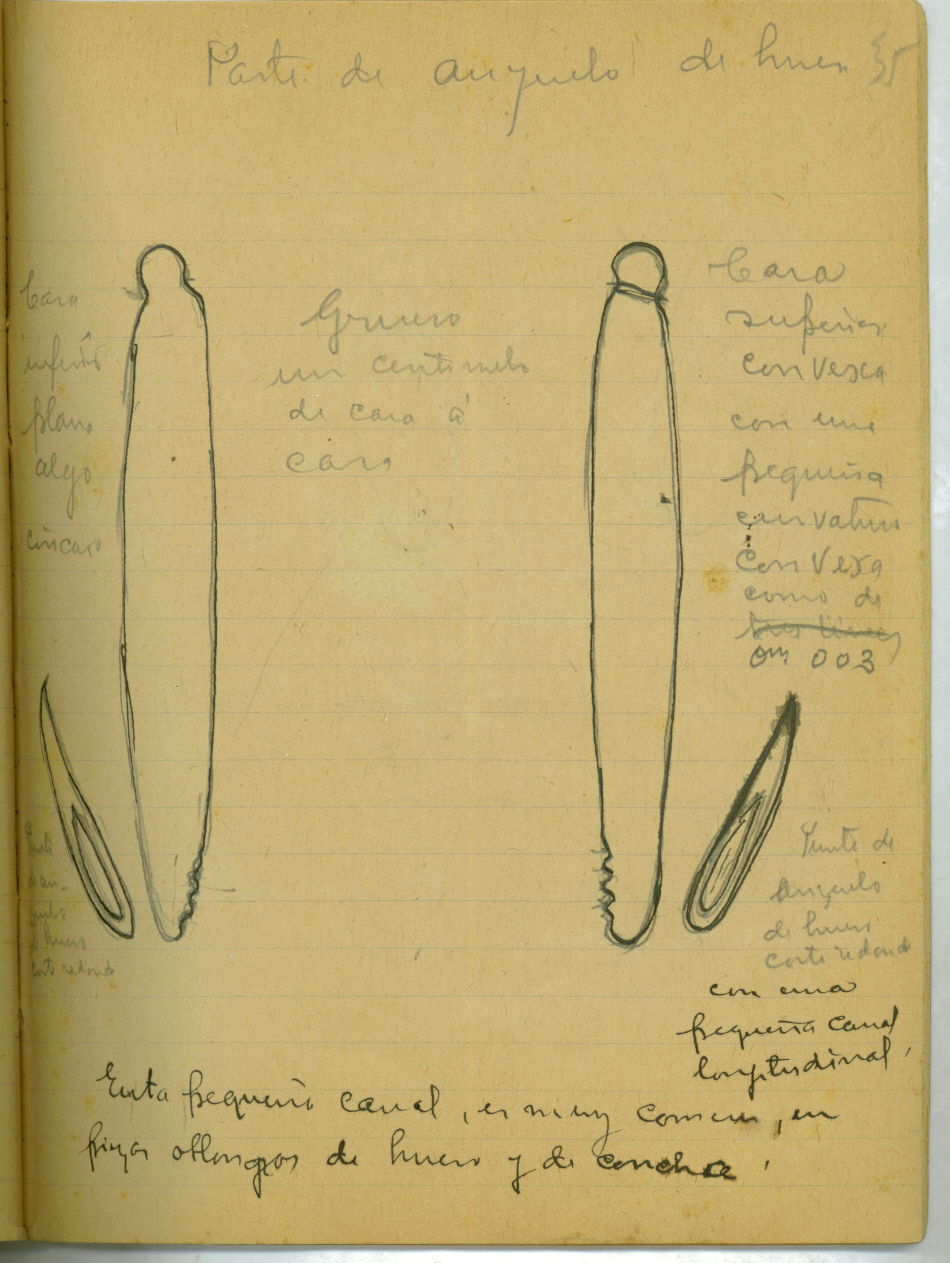 Parte de anzuelo de hueso 35
Cara
inferior
plana
algo
concava
Grueso
un centimetro
de cara á
cara
Cara
superior
convexa
con una
pequeña
curvatura
convexa
como de
tres lineas
0m 003
Punta
de an-
zuelo
de hueso
corte redondo
Punta de
anzuelo
de hueso
corte redondo
con una
pequeña canal
longitudinal,
Esta pequeña canal, es muy comun, en
piezas oblongas de hueso y de concha.